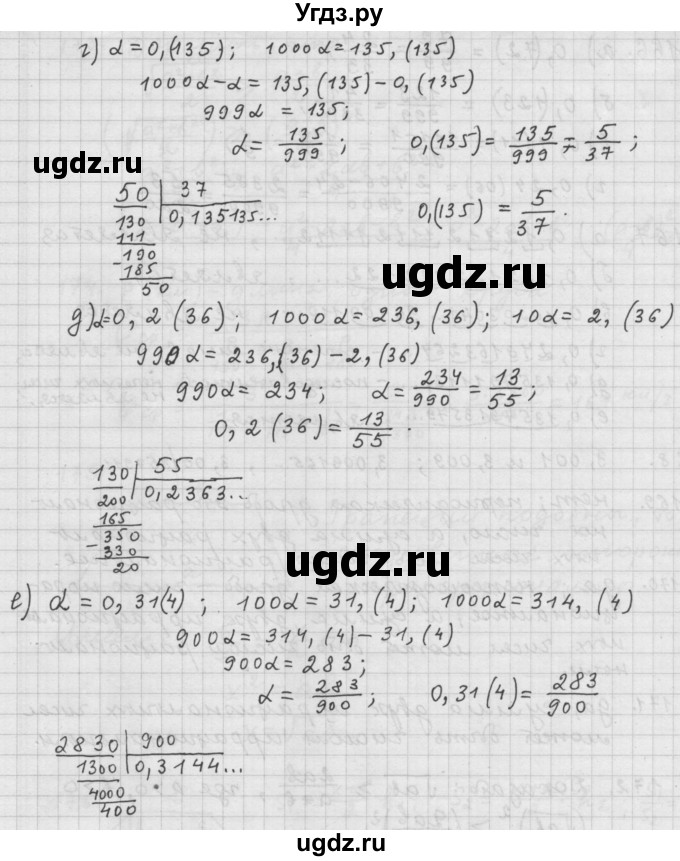 Угдз.ру
г) α = 0,(135) ; 1000α = 135, (135)
1000α - α = 135, (135) - 0, (135)
999α = 135;
α = 135/999 ; 0,(135) = 135/999 = 5/37 ;
50 | 37
130 | 0,135135...
111
- 190
185
50
0,(135) = 5/37 .
д) α = 0, 2 (36) ; 1000α = 236, (36) ; 10α = 2, (36)
990 α = 236, (36) - 2, (36)
990α = 234 ; α = 234/990 = 13/55 ;
0, 2 (36) = 13/55 .
130 | 55
200 | 0,2363...
165
350
- 330
20
е) α = 0, 31(4) ; 100α = 31, (4); 1000α = 314, (4)
900α = 314, (4) - 31, (4)
900α = 283 ;
α = 283/900 ; 0,31(4) = 283/900
2830 | 900
1300 | 0,3144...
4000
400
ugdz.ru
ugdz.ru
ugdz.ru
ugdz.ru
ugdz.ru